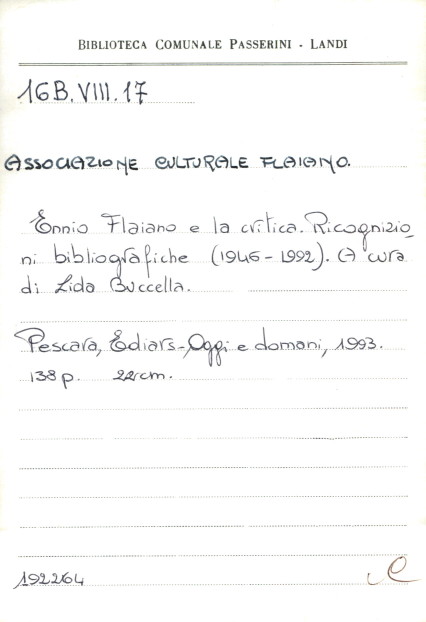 BIBLIOTECA COMUNALE PASSERINI - LANDI
16B.VIII.17
ASSOCIAZIONE CULTURALE FLAIANO.
Ennio Flaiano e la critica. Ricognizio_
ni bibliografiche (1946-1992). A cura
di Lida Buccella.
Pescara, Ediars-Oggi e domani, 1993.
138 p. 22 cm.
192264